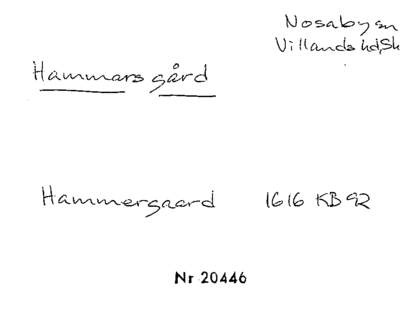 Nosaby sn
Villands hd, Sk
Hammars gård
Hammergaard 1616 KB 92
Nr 20446